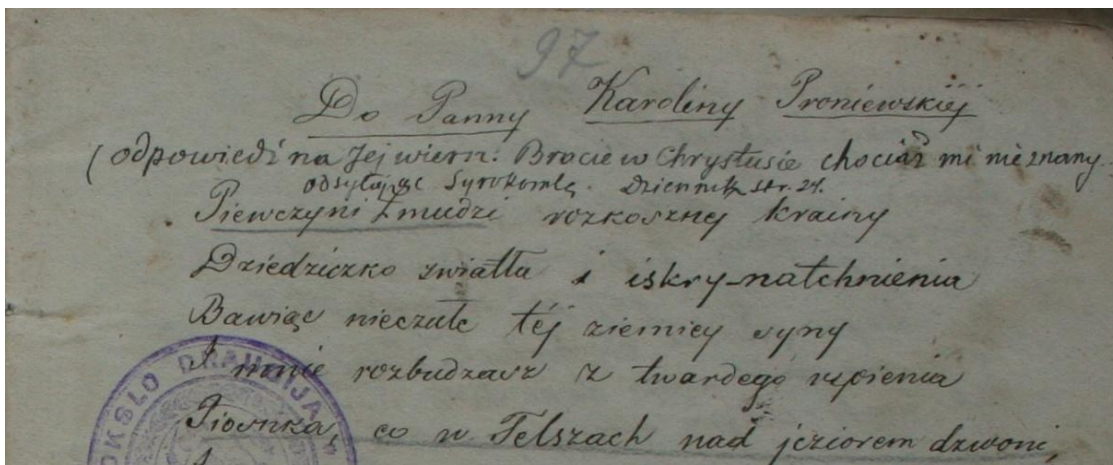 97
Do Panny Karoliny Proniewskiéj
(odpowiedź na Jej wiersz: Bracie w Chrystusie chociaż mi nieznany.
odsyłając Syrokomlę. Dziennik str. 24.
Piewczyni Żmudzi rozkosznej krainy
Dziedziczko światła i iskry natchnienia
Bawiąc nieczułe téj ziemicy syny
I mnie rozbudzasz z twardego uśpienia
Piosnką, co w Telszach nad jeziorem dzwoni,
OKSLO DRAUGIJA